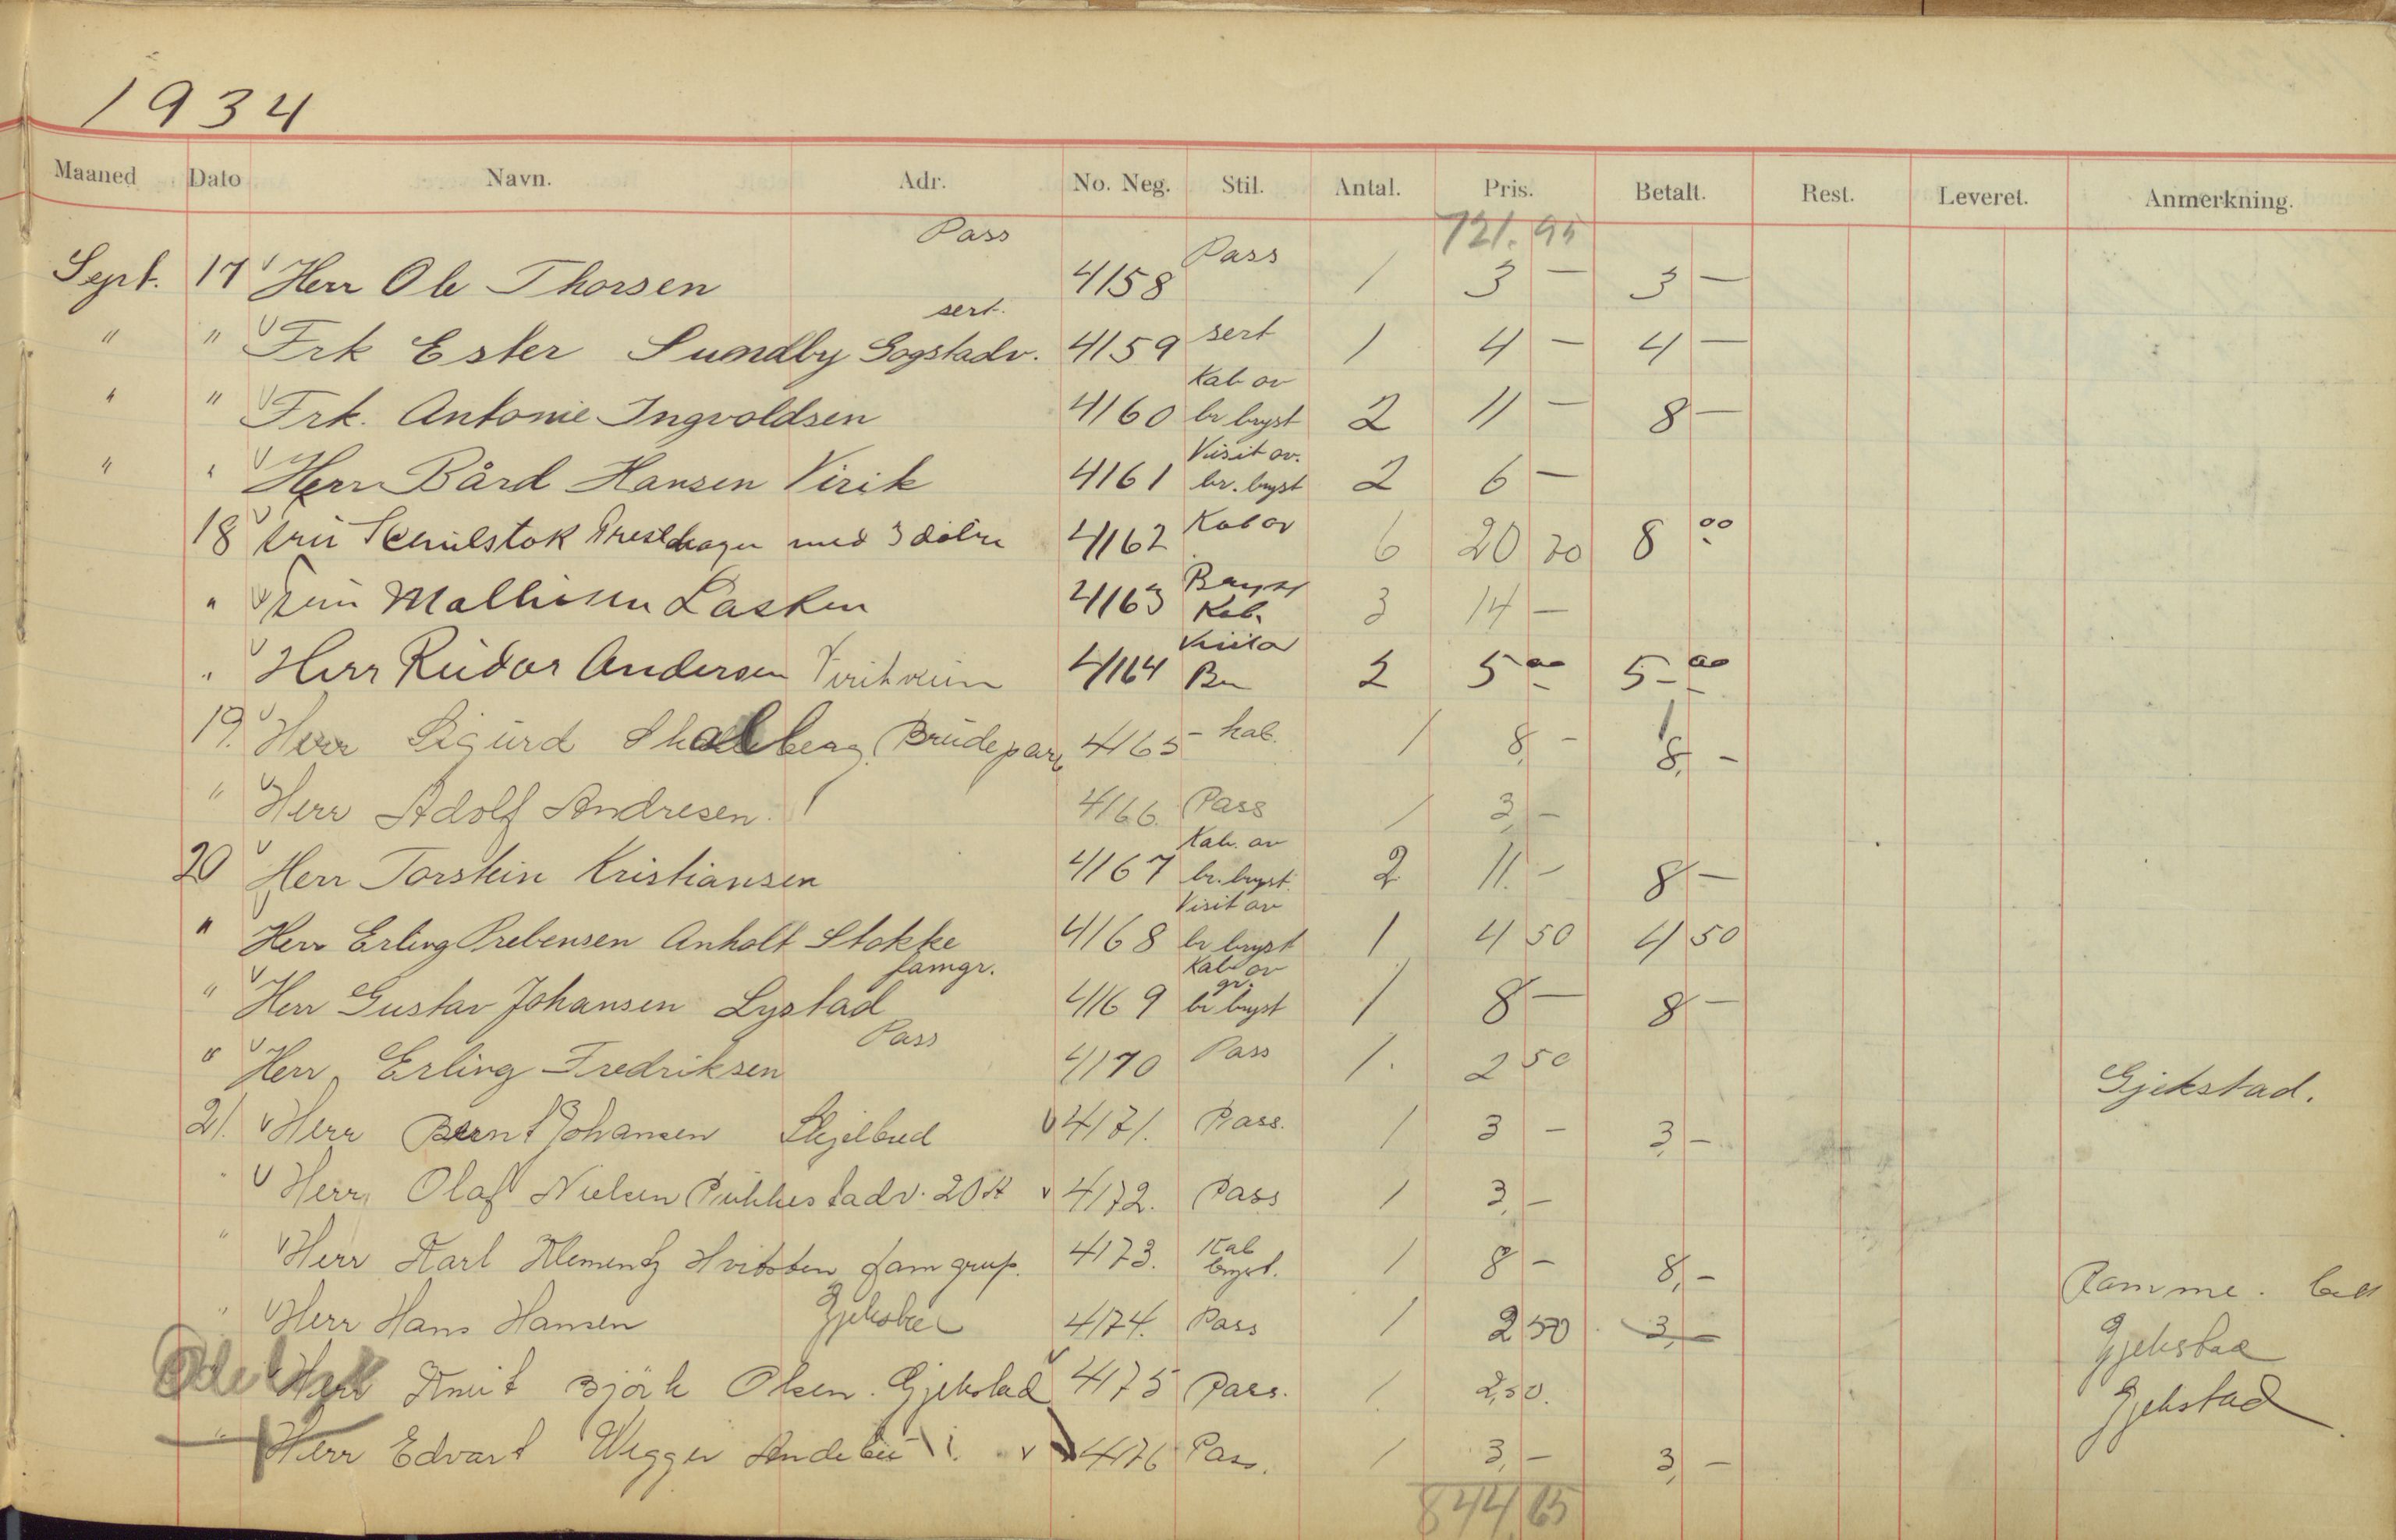 1934
Maaned Dato Navn. Adr. No. Neg. Stil. Antal. Pris. Betalt. Rest. Leveret. Anmerkning.
721.95
Pass Pass
Sept. 17 Herr Ole Thorsen 4158 1 3 — 3 —
sert.
" " Frk Ester Sundby Gogstadv. 4159 sert 1 4 — 4 —
Kab ov
" " Frk. Antonie Ingvoldsen 4160 br bryst 2 11 — 8 —
Visit ov.
" " Herr Bård Hansen Virik 4161 br. bryst 2 6 —
18 med 3 4162 Kab ov 6 20 20 8 00
" Lasken 4163 Bryst Kab. 3 14 —
" Herr Reidar Andersen 4164 Br 2 5 00 5 00
19. Herr Sigurd Brudepar 4165 kab. 1 8, - 8, -
" Herr Adolf Andresen. 4166. Pass 1 3, -
Kab. ov
20 Herr Torstein Kristiansen 4167 br. bryst. 2 11. - 8 —
Visit ov
" Herr Erling Prebensen Anholt Stokke 4168 br bryst 1 4 50 4 50
famgr. Kab ov gr.
" Herr Gustav Johansen Lystad 4169 br bryst 1 8 — 8 —
Pass
" Herr Erling Fredriksen 4170 Pass 1. 2 50 Gjekstad.
21. Herr Bernt Johansen 4171. Pass. 1 3 - 3, -
" Herr Olaf Nielsen 4172. Pass 1 3, -
" Herr Karl Klementz Hvitsten fam grup. 4173. Kab bryst. 1 8 - 8, - Ramme.
" Herr Hans Hansen Gjekstad 4174. Pass 1 2 50 3, - Gjekstad
Herr Knut Björk Olsen. Gjekstad 4175 Pass. 1. 2,50. Gjekstad
" Herr Edvart Wegger Andebu 4176 Pass. 1 3, - 3, -
844,65